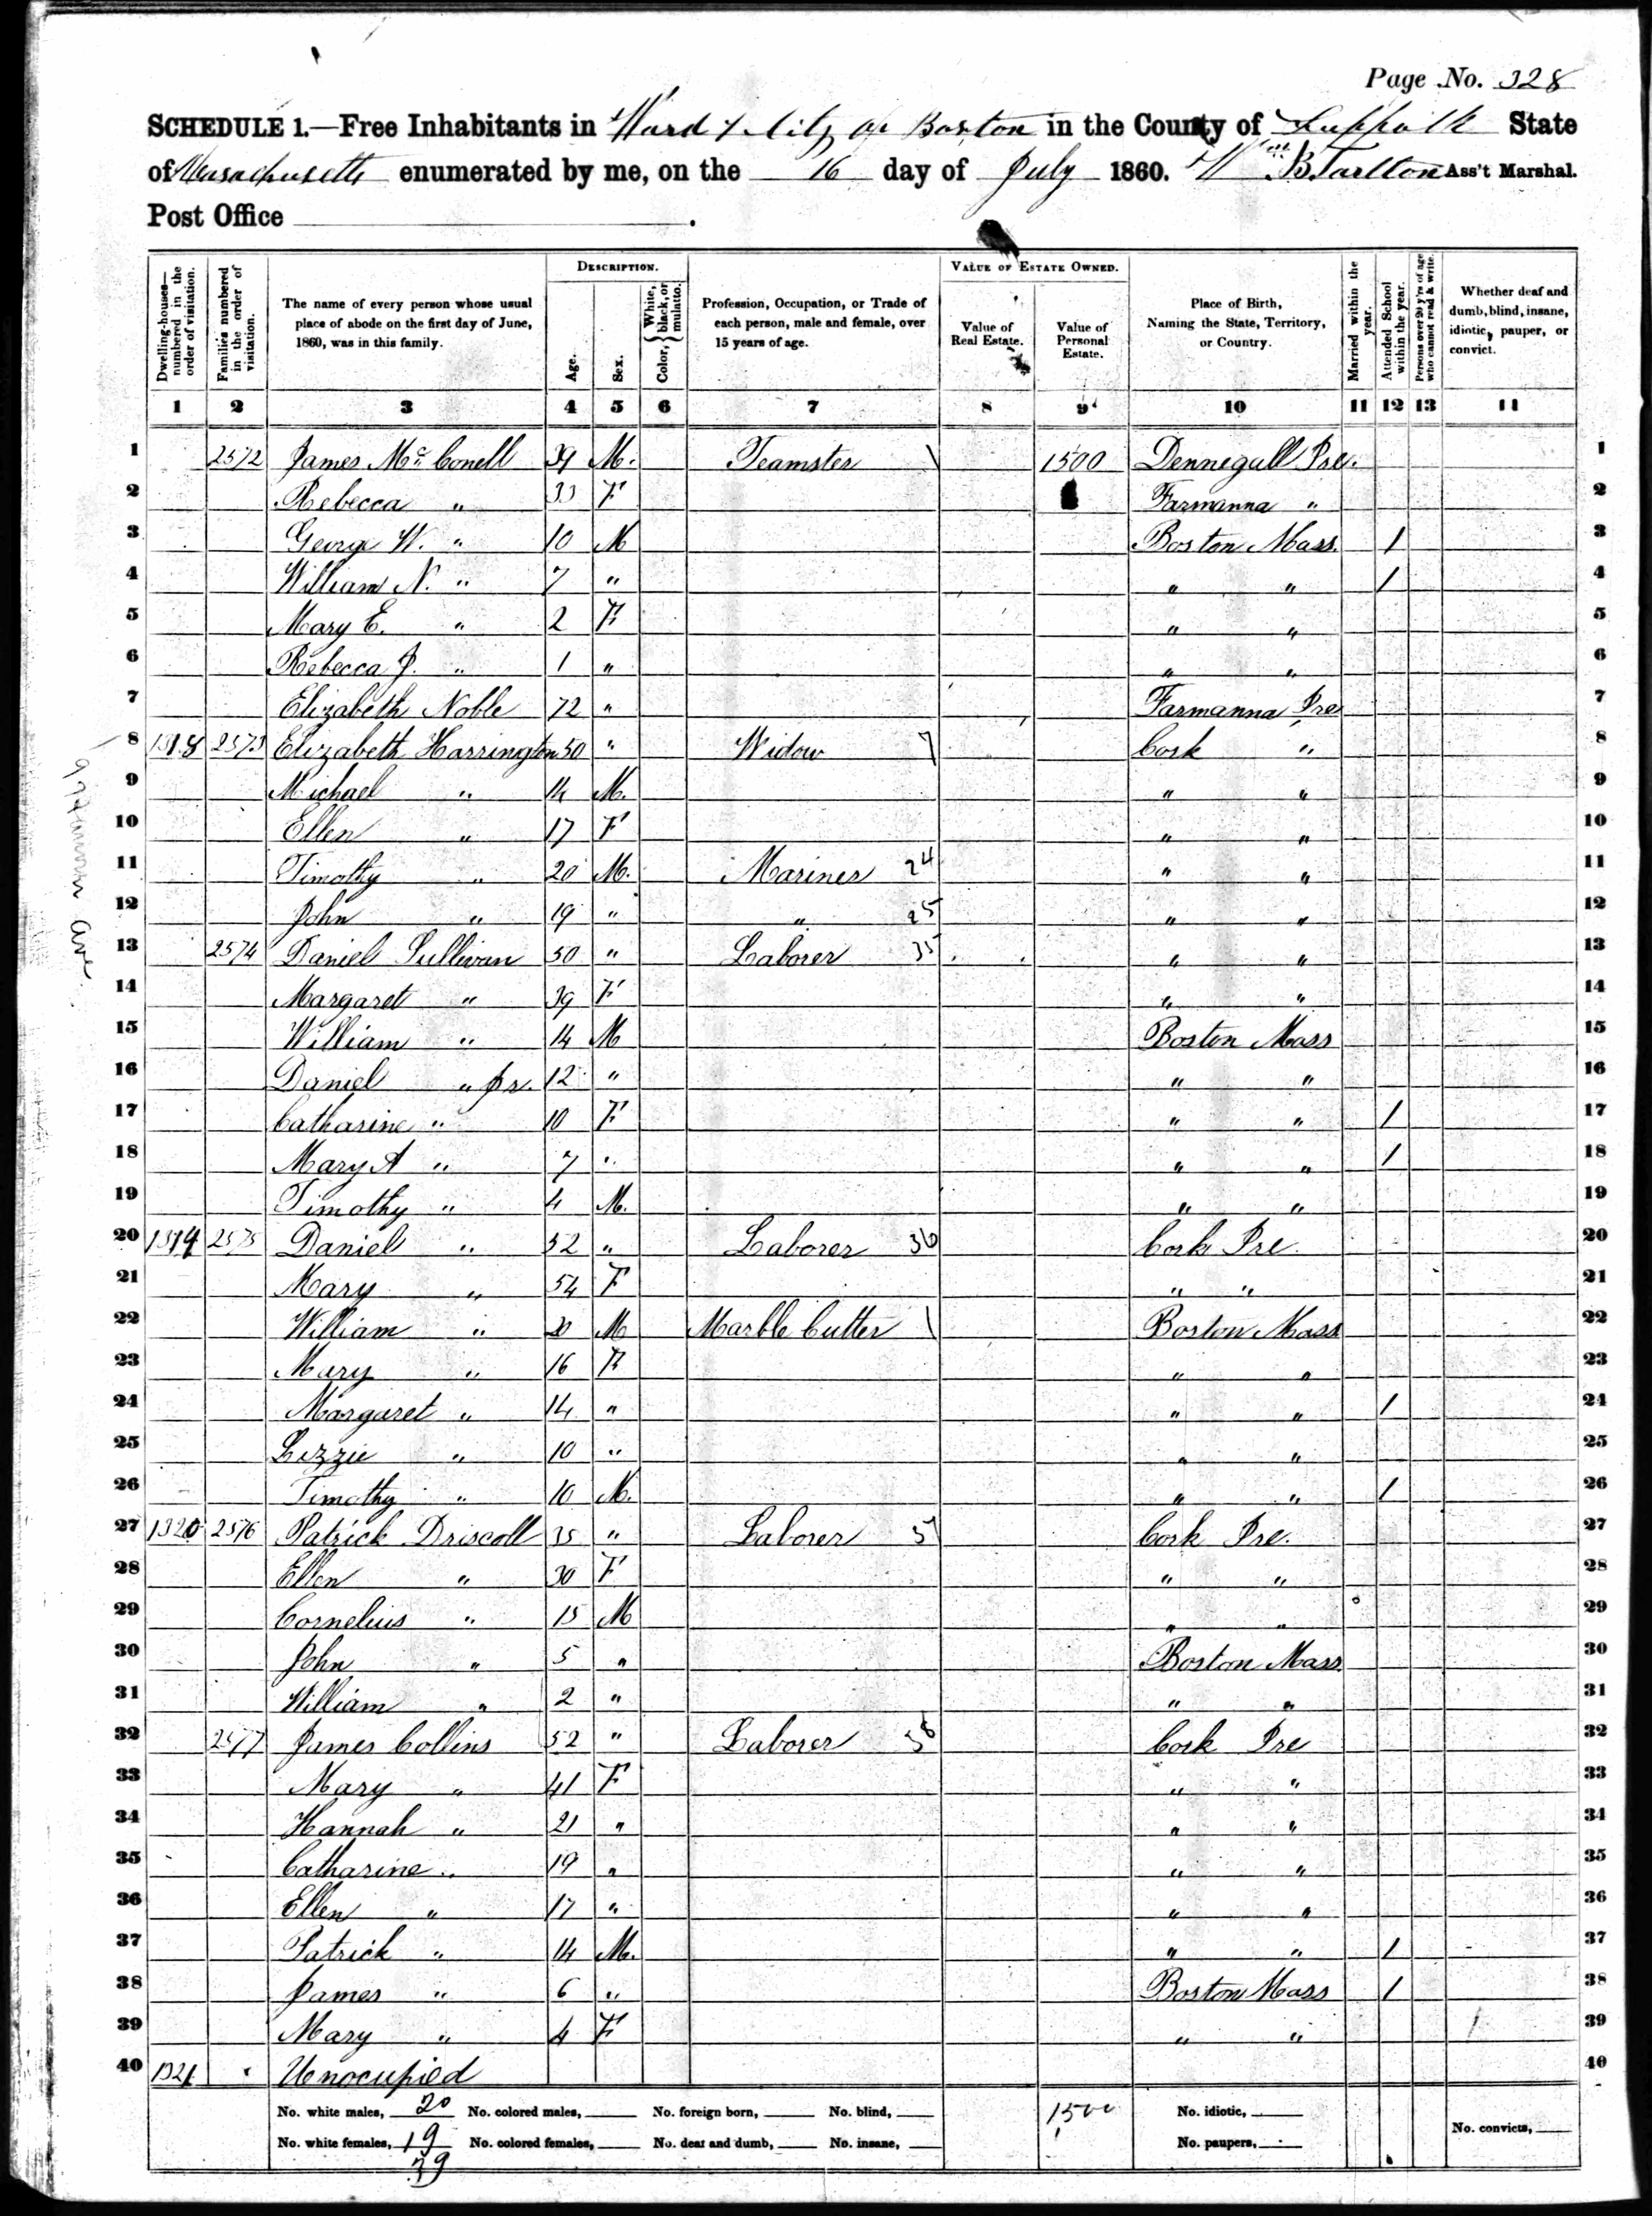 Page No. 328
SCHEDULE 1.—Free Inhabitants in Ward 7 City of Boston in the County of Suffolk State
of Massachusetts enumerated by me, on the 16 day of July 1860. Wm B Tarlton Ass't Marshal.
Post Office .
Dwelling-houses—numbered in the order of visitation. Families numbered in the order of visitation. The name of every person whose usual place of abode on the first day of June, 1860, was in this family. DESCRIPTION. Age. Sex. Color, { White, black, or mulatto. Profession, Occupation, or Trade of each person, male and female, over 15 years of age. VALUE OF ESTATE OWNED. Value of Real Estate. Value of Personal Estate. Place of Birth, Naming the State, Territory, or Country. Married within the year. Attended School within the year. Persons over 20 y'rs of age who cannot read & write. Whether deaf and dumb, blind, insane, idiotic, pauper, or convict.
1 2 3 4 5 6 7 8 9 10 11 12 13 14
1 2572 James Mc Conell 39 M. Teamster \ 1500 Dennegall Ire. 1
2 Rebecca " 33 F Farmanna " 2
3 George W. " 10 M Boston Mass. / 3
4 William N. " 7 " " " / 4
5 Mary E. " 2 F " " 5
6 Rebecca J. " 1 " " " 6
7 Elizabeth Noble 72 " Farmanna Ire 7
8 1318 2573 Elizabeth Harrington 50 " Widow 7 Cork " 8
9 Michael " 14 M. " " 9
10 Ellen " 17 F " " 10
11 Timothy " 20 M. Mariner 24 " " 11
12 John " 19 " " 25 " " 12
13 2574 Daniel Sullivan 50 " Laborer 35 " " 13
14 Margaret " 39 F " " 14
15 William " 14 M Boston Mass 15
16 Daniel " Jr. 12 " " " 16
17 Catharine " 10 F " " / 17
18 Mary A " 7 " " " / 18
19 Timothy " 4 M. " " 19
20 1319 2575 Daniel " 52 " Laborer 36 Cork Ire. 20
21 Mary " 54 F " " 21
22 William " 20 M Marble Cutter \ Boston Mass 22
23 Mary " 16 F " " 23
24 Margaret " 14 " " " / 24
25 Lizzie " 10 " " " 25
26 Timothy " 10 M. " " / 26
27 1320 2576 Patrick Driscoll 35 " Laborer 37 Cork Ire. 27
28 Ellen " 30 F " " 28
29 Cornelius " 15 M " " 29
30 John " 5 " Boston Mass 30
31 William " 2 " " " 31
32 2577 James Collins 52 " Laborer 38 Cork Ire 32
33 Mary " 41 F " " 33
34 Hannah " 21 " " " 34
35 Catharine " 19 " " " 35
36 Ellen " 17 " " " 36
37 Patrick " 14 M. " " / 37
38 James " 6 " Boston Mass / 38
39 Mary " 4 F " " 39
40 1321 Unocupied 40
No. white males, 20 No. colored males, No. foreign born, No. blind, 1500 No. idiotic,
No. white females, 19 No. colored females, No. deaf and dumb, No. insane, No. paupers, No. convicts,
39